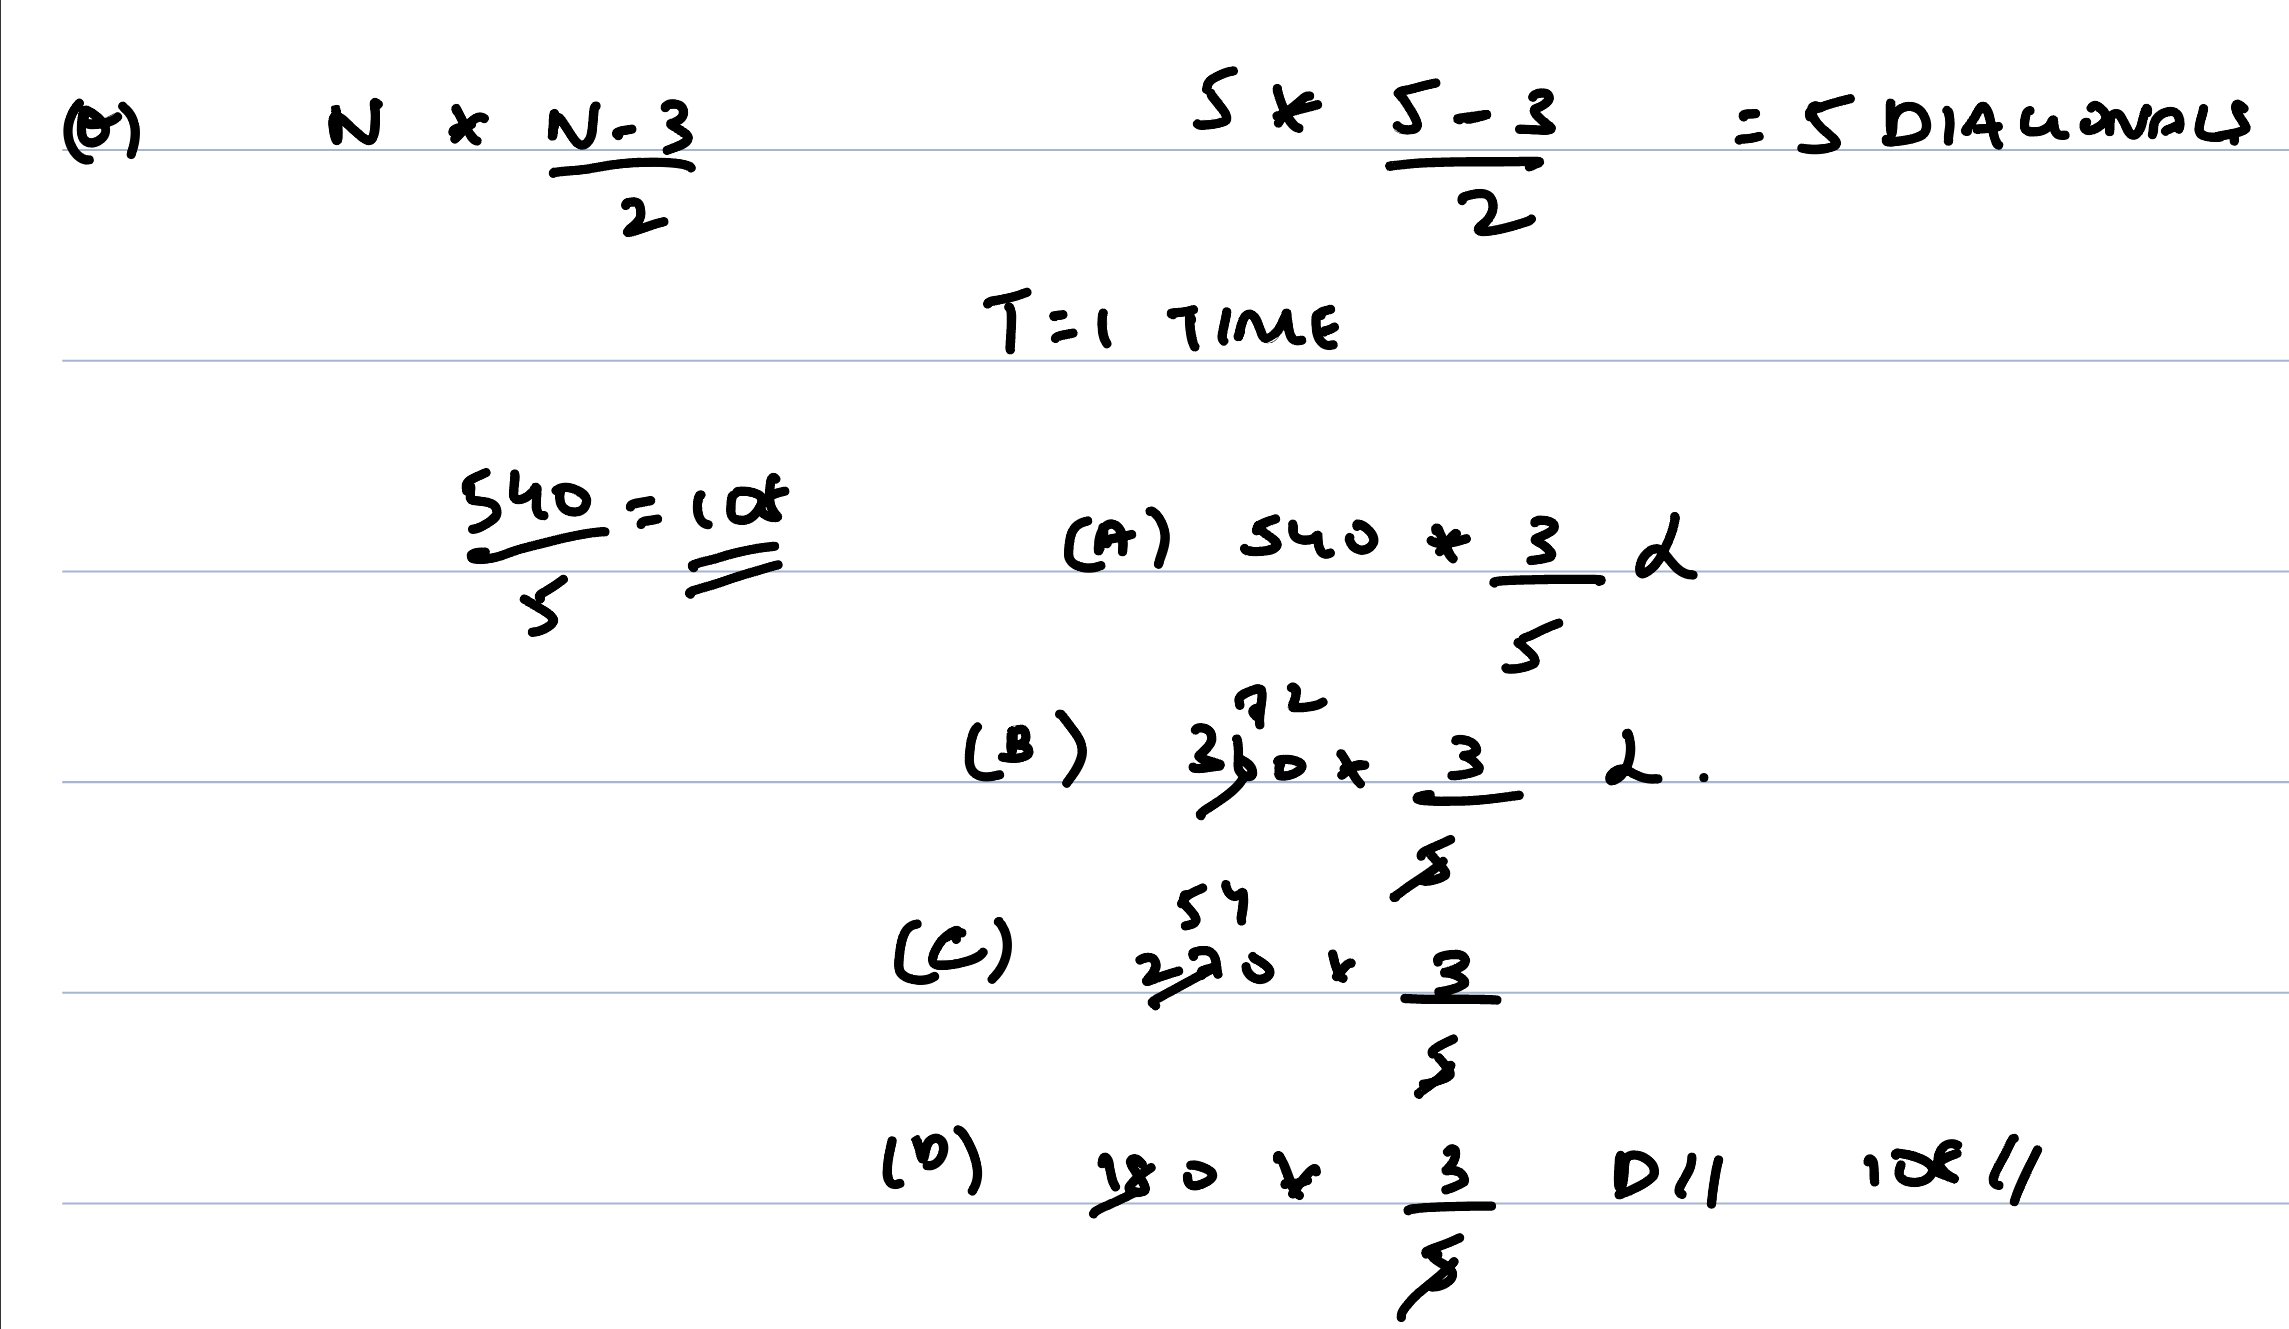 (Q) N * N-3/2 5 * 5-3/2 = 5 DIAGONALS
T=1 TIME
540/5 = 108 (A) 540 * 3/5
72
(B) 360 * 3/5
54
(C) 270 * 3/5
(D) 180 * 3/5 D// 108 //